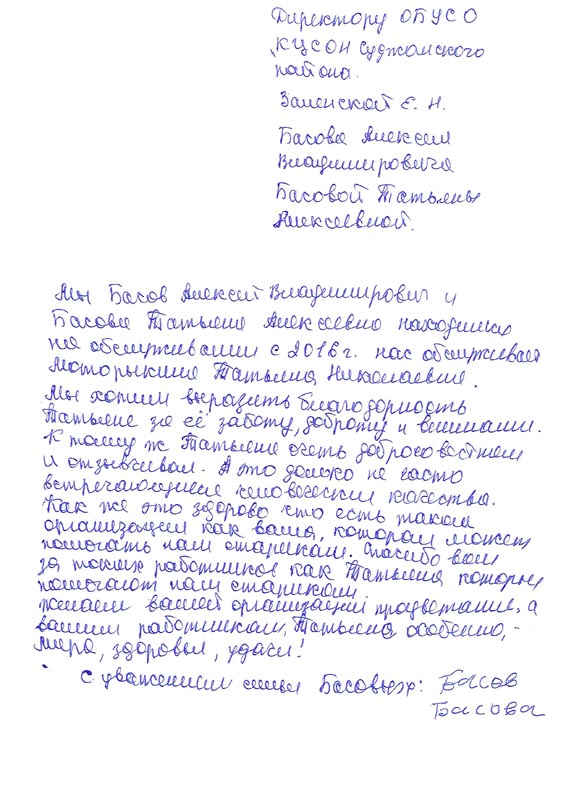 Директору ОПУСО
КЦСОН Суджанского
района.
Заленской Е. Н.
Басова Алексея
Владимировича
Басовой Татьяны
Алексеевной.
Мы Басов Алексей Владимирович и
Басова Татьяна Алексеевна находимся
на обслуживании с 2016 г. нас обслуживает
Моторыкина Татьяна Николаевна.
Мы хотим выразить благодарность
Татьяне за её заботу, доброту и внимание.
К тому ж Татьяна очень добросовестная
и отзывчивая. А это далеко не часто
встречающиеся человеческие качества.
Как же это здорово что есть такая
организация как ваша, которая может
помогать нам старикам. Спасибо вам
за таких работников как Татьяна которые
помогают нам старикам.
желаем вашей организации процветания. а
вашим работникам, Татьяна особенно, -
мира, здоровья, удачи!
с уважением семья Басовых: Басов
Басова